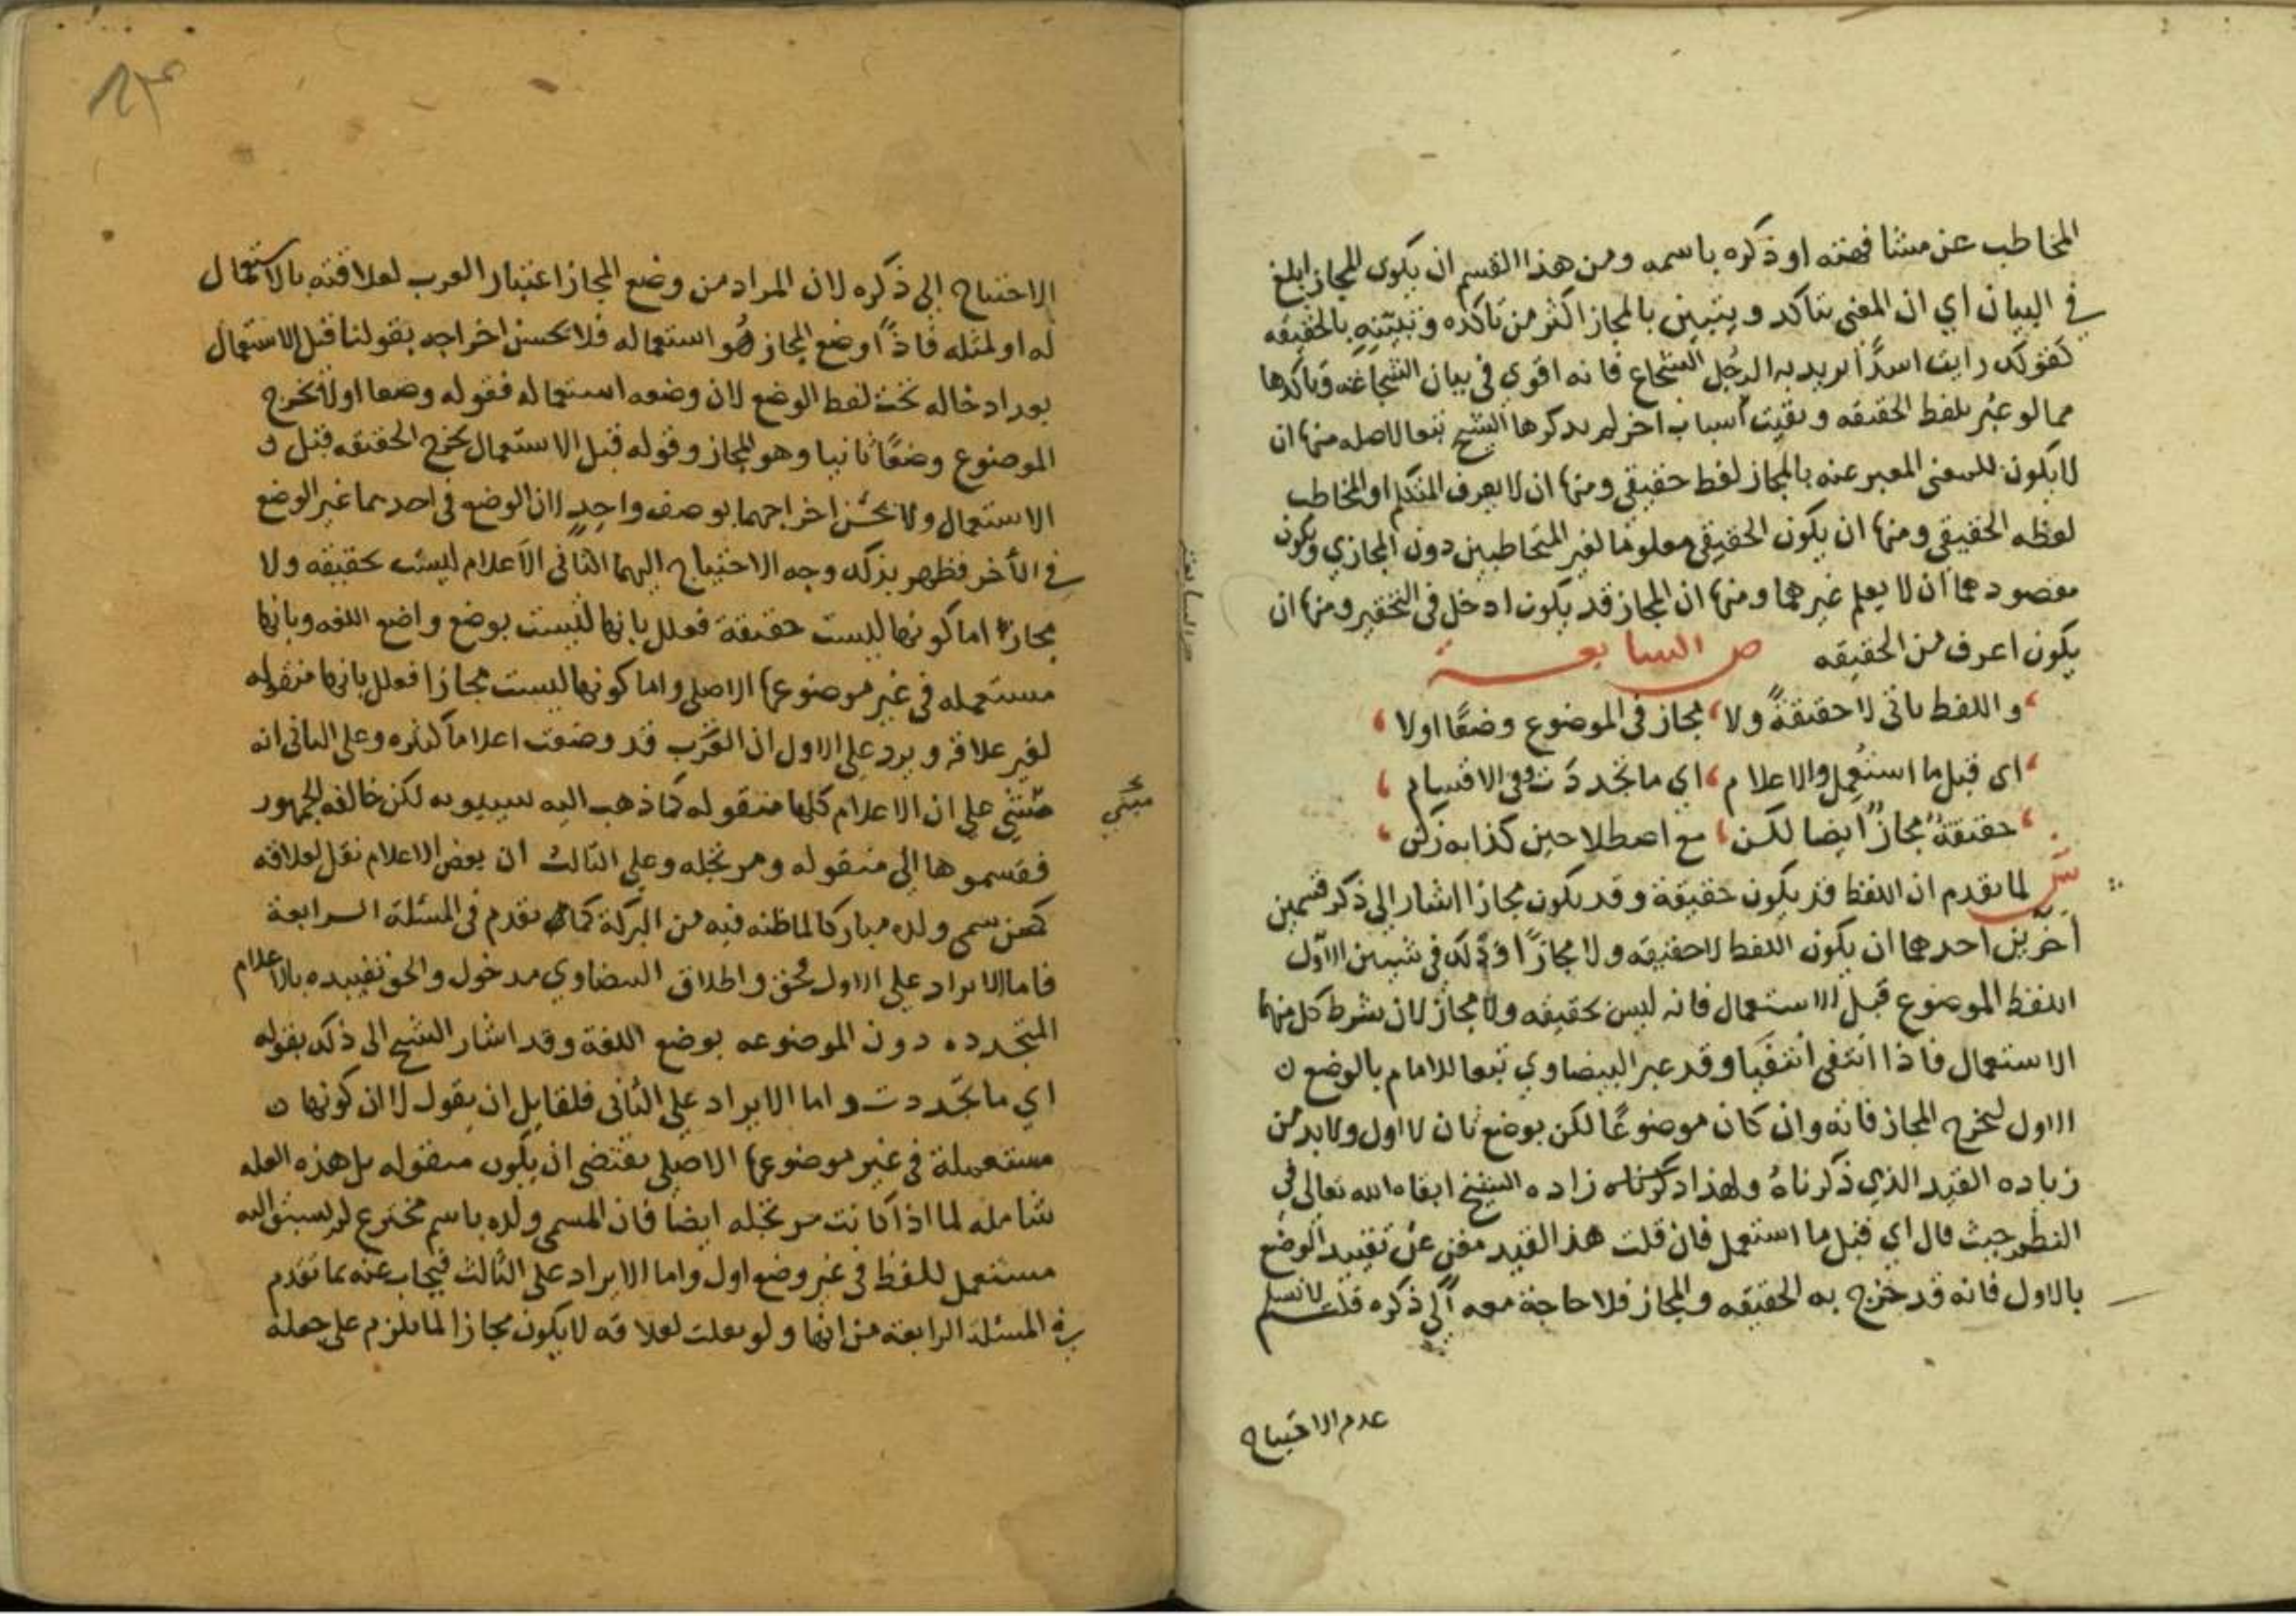 المخاطب عن مشافهته او ذكره باسمه ومن هذا القسم ان يكون المجاز ابلغ
في البيان اي ان المعنى يتاكد ويتبين بالمجاز اكثر من تاكده وتبيّنه بالحقيقه
كقولك رايت اسدًا تريد به الرجل الشجاع فانه اقوي في بيان الشجاعة وتاكدها
مما لو عبر بلفظ الحقيقه وبقيت اسباب اخر لم يذكرها الشيخ تبعا لاصله منها ان
لا يكون للمعنى المعبر عنه بالمجاز لفظ حقيقي ومنها ان لا يعرف المتكلم او المخاطب
لفظه الحقيقي ومنها ان يكون الحقيقي معلومًا لغير المتخاطبين دون المجازي ويكون
مقصودهما ان لا يعلم غيرهما ومنها ان المجاز قد يكون ادخل في التحقير ومنها ان
يكون اعرف من الحقيقه ص السابعة
واللفظ ياتى لا حقيقةً ولا مجاز في الموضوع وضعًا اولا
اى قبل ما استُعمل والاعلام اي ما تجددت وفي الاقسام
حقيقةٌ مجازٌ ايضا لكن مع اصطلاحين كذا به زكن
ش لما تقدم ان اللفظ قد يكون حقيقة وقد يكون مجازا اشار الي ذكر قسمين
اخرين احدهما ان يكون اللفظ لا حقيقه ولا مجازًا وذلك في شيين الاول
اللفظ الموضوع قبل الاستعمال فانه ليس بحقيقه ولا مجاز لان شرط كل منهما
الاستعمال فاذا انتفى انتفيا وقد عبر البيضاوي تبعا للامام بالوضع
الاول ليخرج المجاز فانه وان كان موضوعًا لكن بوضع ثان لا اول ولا بد من
زياده القيد الذي ذكرناهُ ولهذا زاده الشيخ ابقاه الله تعالى في
النظم حيث قال اي قبل ما استعمل فان قلت هذا القيد مغن عن تقييد الوضع
بالاول فانه قد خرج به الحقيقه والمجاز فلا حاجة معه الي ذكره قلت لا نسلم
عدم الاحتياج
الاحتياج الي ذكره لان المراد من وضع المجاز اعتبار العرب لعلاقته بالاستعمال
له او لمثله فاذًا وضع المجاز هو استعماله فلا يحسن اخراجه بقولنا قبل الاستعمال
بعد ادخاله تحت لفظ الوضع لان وضعه استعماله فقوله وضعا اولا يخرج
الموضوع وضعًا ثانيا وهو المجاز وقوله قبل الاستعمال يخرج الحقيقه قبل
الاستعمال ولا يحسن اخراجهما بوصف واحد لان الوضع في احدهما غير الوضع
في الآخر فظهر بذلك وجه الاحتياج اليهما الثاني الاعلام ليست بحقيقه ولا
مجاز اما كونها ليست حقيقة فعلل بانها ليست بوضع واضع اللغه وبانها
مستعمله في غير موضوعها الاصلي واما كونها ليست مجازا فعلل بانها منقوله
لغير علاقة ويرد على الاول ان العرب قد وضعت اعلاما كثيره وعلى الثاني انه
مبني على ان الاعلام كلها منقوله كما ذهب اليه سيبويه لكن خالفه الجمهور
مبني
فقسموها الى منقوله ومرتجله وعلى الثالث ان بعض الاعلام نقل لعلاقه
كمن سمى ولده مباركا لما ظنه فيه من البركة كما تقدم في المسئلة الرابعة
فاما الايراد على الاول فحق واطلاق البيضاوي مدخول والحق تقييده بالاعلام
المتجدده دون الموضوعه بوضع اللغة وقد اشار الشيخ الى ذلك بقوله
اي ما تجددت واما الايراد على الثاني فلقايل ان يقول لا ان كونها
مستعملة في غير موضوعها الاصلي يقتضى ان يكون منقوله بل هذه العله
شامله لما اذا كانت مرتجله ايضا فان المسمى ولده باسم مخترع لم يسبق اليه
مستعمل للفظ في غير وضع اول واما الايراد على الثالث فيجاب عنه بما تقدم
في المسئلة الرابعة من انها ولو نقلت لعلاقه لا يكون مجازا لما يلزم على جعله